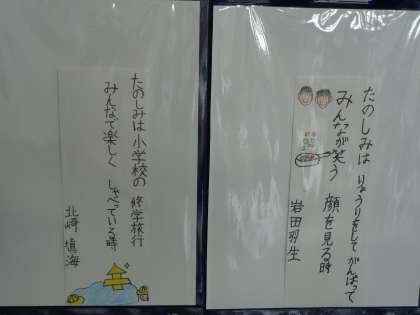 たのしみは小学校の 修学旅行
みんなで楽しく しゃべっている時
北崎 填海
たのしみは りょうりをして がんばって
みんなが笑う 顔を見る時
岩田羽生